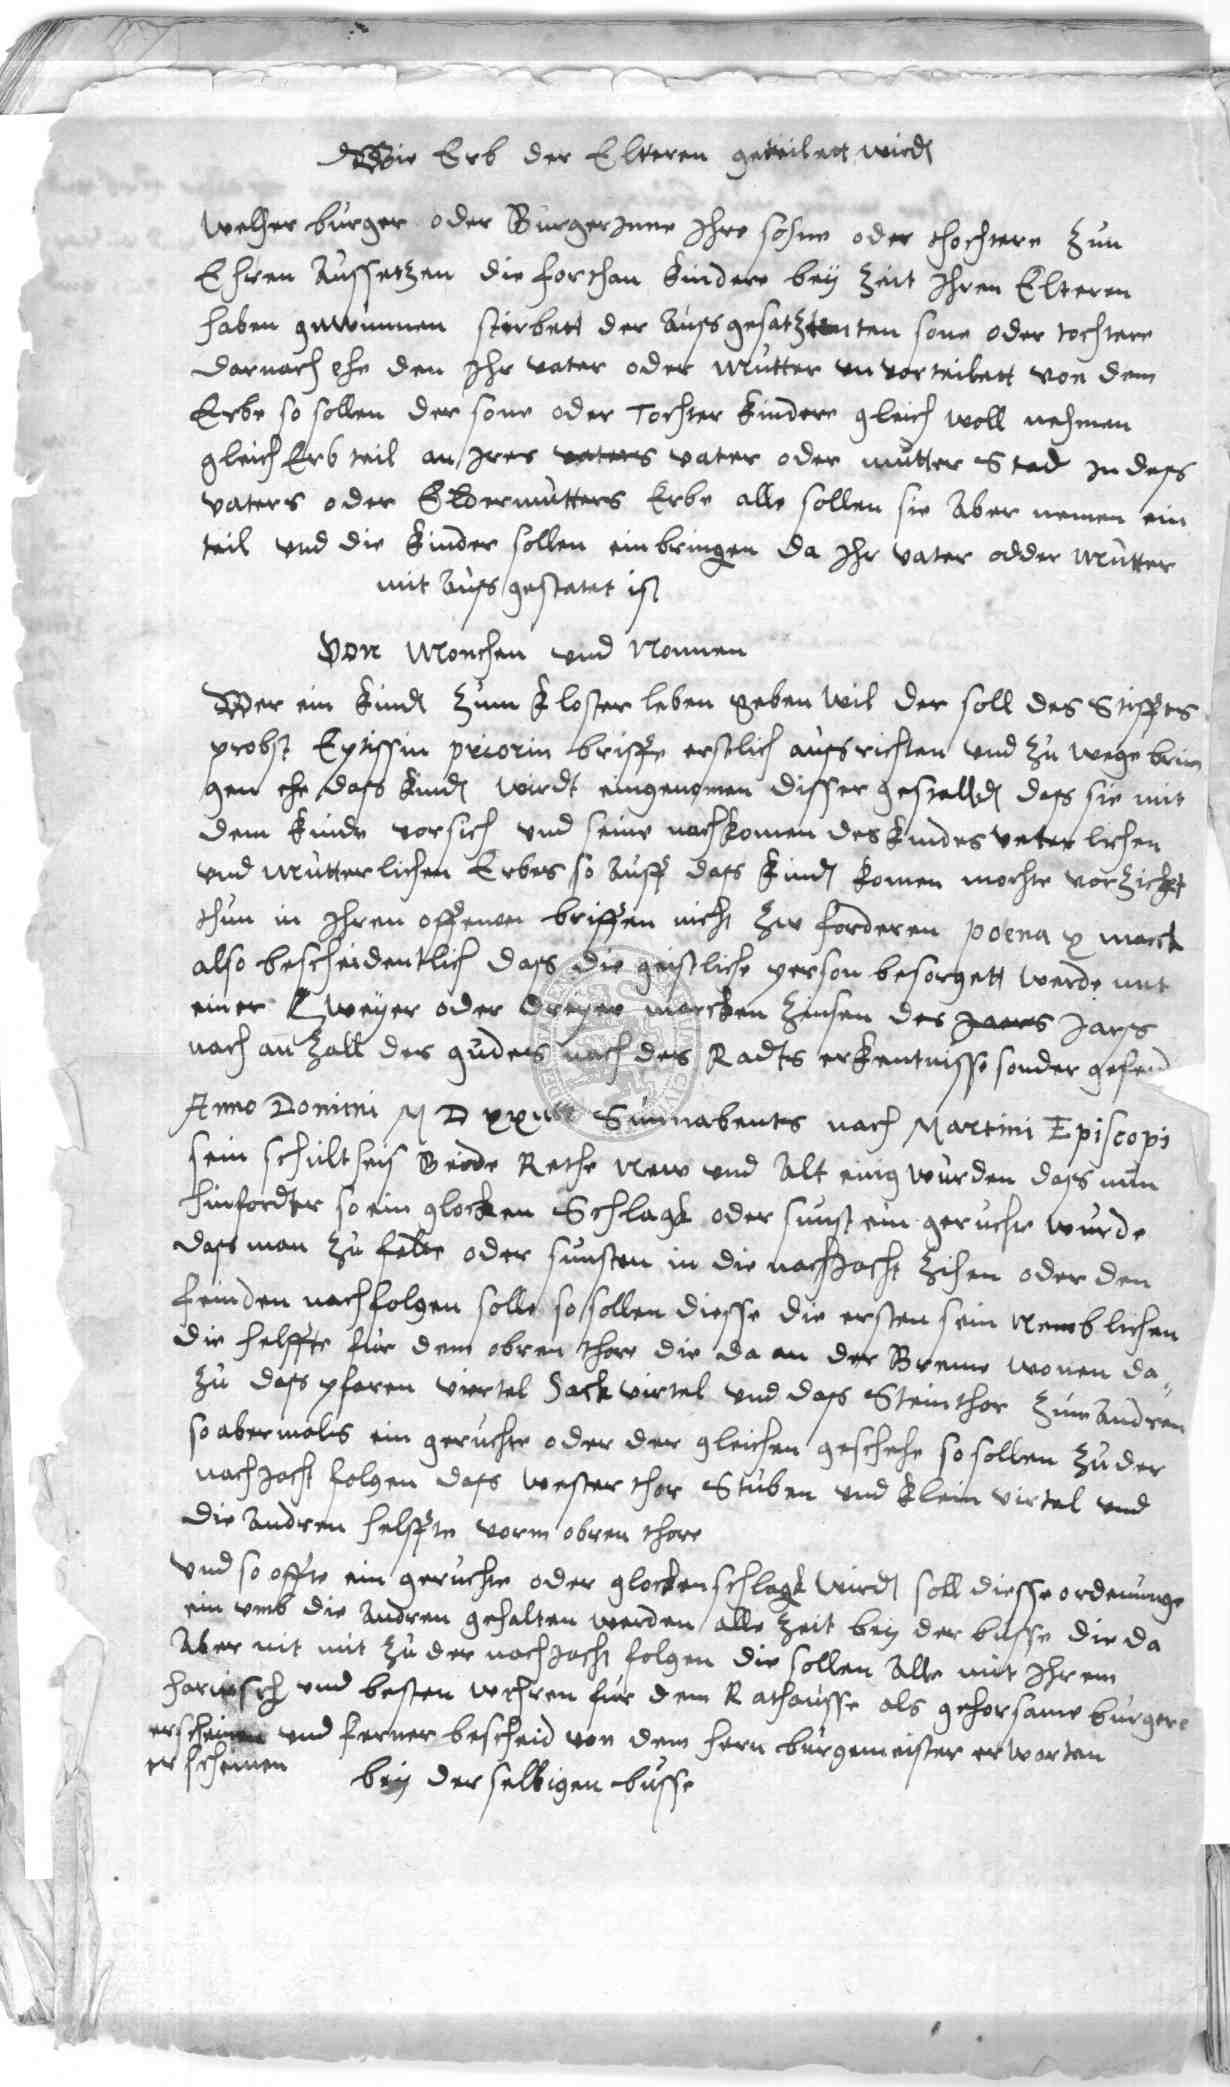 Wie Erb der Elteren geteilett wirdt
Welcher burger oder Burgerinne Ihre sohne oder thochtere Zun
Ehren Aussetzen die forthan kindere beÿ Zeit Ihren Elteren
haben gewunnen sterbett der Ausgesatzten sone oder tochtere
darnach ehe den Ihr vater oder Mutter unvorteilett von dem
Erbe so sollen der sone oder Tochter kindere gleich woll nehmen
gleich Erb teil an Irer vaters vater oder mutter Stad In dess
vaters oder Eldermutters Erbe alle sollen sie Aber nemen ein
teil und die kinder sollen einbringen da Ihr vater odder Mutter
mit Ausgestatet ist
Von Monchen und Nonnen
Wer ein kindt Zum kloster leben geben wil der soll des Stifftes
probst Eptissin priorin briffe erstlich aufsrichten und Zu wege brin
gen ehe dass kindt wirdt eingenomen disser gestalldt dass sie mit
dem kinde vor sich und seine nachkomen des kindes veterlichen
und Mutterlichen Erbes so Auff dass kindt komen mochte vorZicht
thun in Ihren offenen briffen nicht Zu forderen poena x marck
also bescheidentlich dass die geistliche person besorgett werde mit
einer Zweÿer oder dreyer marcken Zinsen des Jaers Jars
nach anZall des gudes nach des Radts erkentnisse sonder geferd
Anno Domini M D Sunnabents nach Martini Episcopi
sein schultheis Beide Rethe New und Alt einig wurden dass nun
hinfordter so ein glocken Schlagk oder sunst ein geruchte wurde
dass man Zu felde oder sunsten in die nachJacht Zihen oder den
feinden nachfolgen solle so sollen diesse die ersten sein Nemblichen
die helffte fur dem obren thore die da an der Breme wonen da
Zu dass pfaren viertel Sack virtel und dass Steinthor Zum Andren
so abermals ein geruchte oder der gleichen geschehe so sollen Zu der
nachJacht folgen dass wester thor Stuben und klein virtel und
die Andren helffte vorm obren thore
und so offte ein geruchte oder glockenschlagk wirdt soll diesse ordenunge
ein umb die Andren gehalten werden alle Zeit beÿ der busse die da
Aber nit mit Zu der nachJacht folgen die sollen Alle mit Ihrem
harnisch und besten wehren fur dem Rathausse als gehorsame burgere
erscheinen und ferner bescheid von dem hern burgemeister erwarten
erscheinen beÿ der selbigen busse